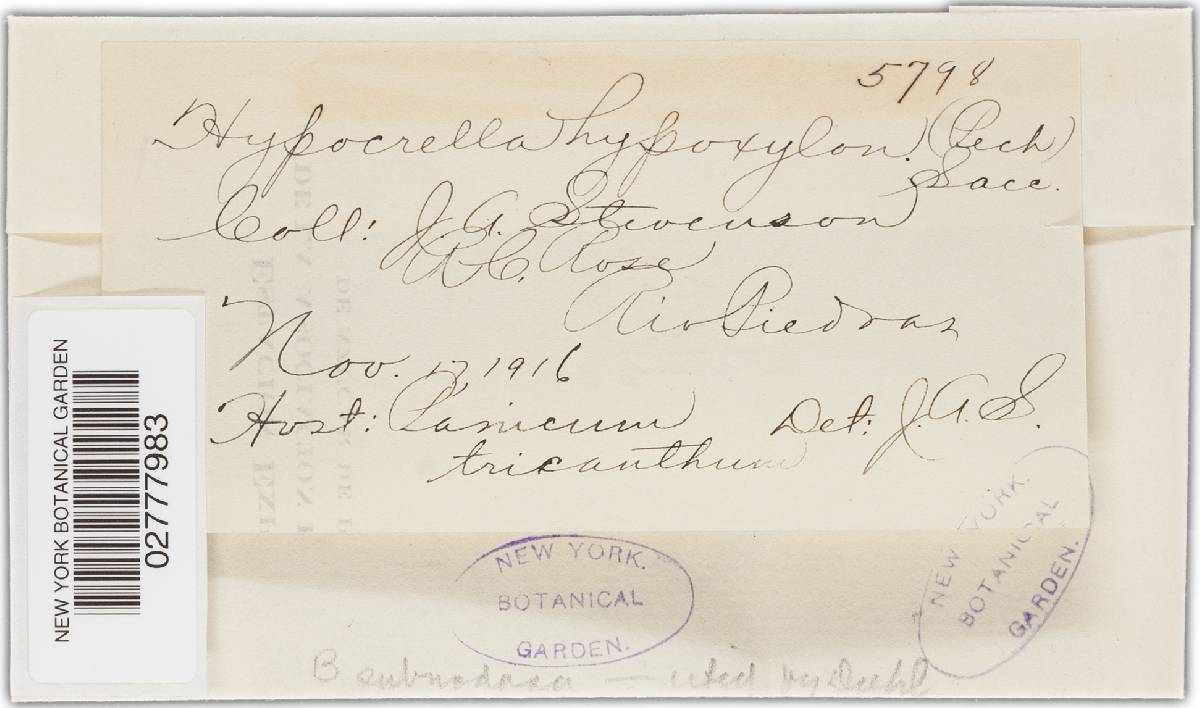 5798
Hypocrella hypoxylon. (Peck)
Sacc.
Coll: J. A. Stevenson
R.C. Rose
Rio Piedras
Nov. 17, 1916
Host: Panicum Det: J.A.S.
tricanthum
NEW YORK BOTANICAL GARDEN
02777983
NEW YORK.
BOTANICAL
GARDEN.
NEW YORK.
BOTANICAL
GARDEN.
B subnodosa — by Diehl